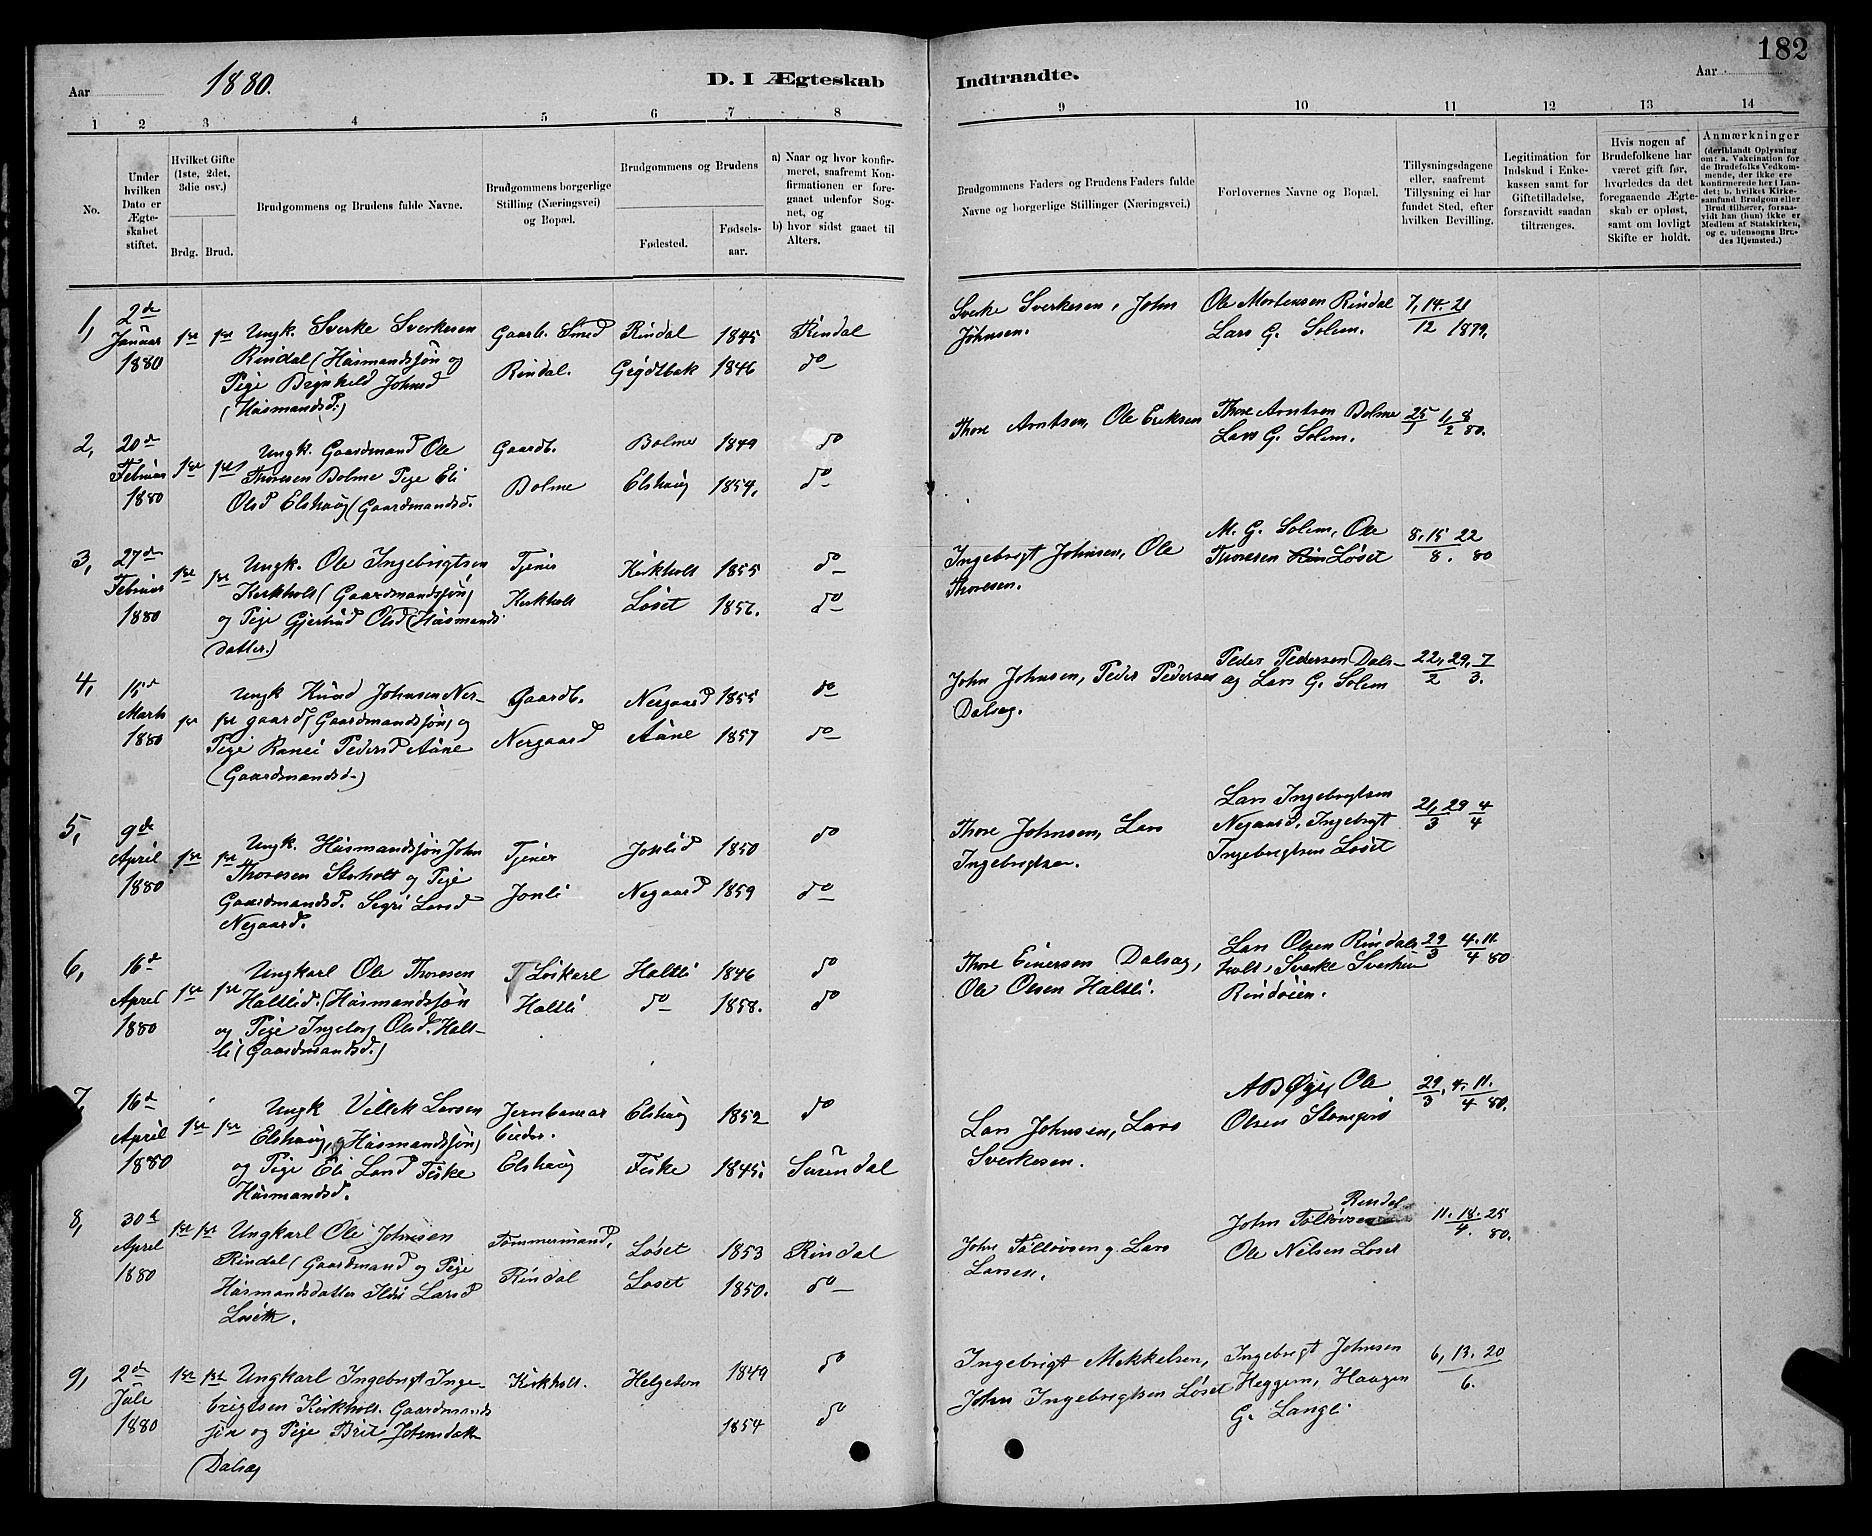 182
Aar 1880.
D. I Ægteskab Indtraadte.
Aar
1 2 3 4 5 6 7 8 9 10 11 12 13 14
No.
Under hvilken Dato er Ægteskabet stiftet.
Hvilket Gifte (1ste, 2det, 3die osv.)
Brdg. Brud.
Brudgommens og Brudens fulde Navne.
Brudgommens borgerlige Stilling (Næringsvei) og Bopæl.
Brudgommens og Brudens
Fødested.
Fødselsaar.
a) Naar og hvor konfirmeret, saafremt Konfirmationen er foregaaet udenfor Sognet, og
b) hvor sidst gaaet til Alters.
Brudgommens Faders og Brudens Faders fulde Navne og borgerlige Stillinger (Næringsvei.)
Forlovernes Navne og Bopæl.
Tillysningsdagene eller, saafremt Tillysning ei har fundet Sted, efter hvilken Bevilling.
Legitimation for Indskud i Enkekassen samt for Giftetilladelse, forsaavidt saadan tiltrænges.
Hvis nogen af Brudefolkene har været gift før, hvorledes da det foregaaende Ægteskab er opløst, samt om lovligt Skifte er holdt.
Anmærkninger (deriblandt Oplysning om: a. Vakcination for de Brudefolks Vedkommende, der ikke ere konfirmerede her i Landet; b. hvilket Kirkesamfund Brudgom eller Brud tilhører, forsaavidt han (hun) ikke er Medlem af Statskirken, og c. udensogns Brudes Hjemsted.)
1, 2de Januar 1880 1ste 1ste Ungk. Sverke Sverkesen
Rindal (Husmandssøn og
Pige Brynhild Johnsd
(Husmandsd.)
Gaarb. Smed
Rindal.
Rindal 1845 Rindal
Grødtbak 1846 do
Sverke Sverkesen, John
Johnsen.
Ole Mortensen Rindal
Lars G. Solem.
7, 14. 21
12 1879.
2, 20de Februar 1880 1ste 1ste Ungk. Gaardmand Ole
Thoresen Bolme Pige Eli
Olsd Elshaug (Gaardmandsd.
Gaardb.
Bolme
Bolme 1849 do
Elshaug 1854, do
Thore Arntsen, Ole Eriksen
Thore Arntsen Bolme
Lars G. Solem.
25/1 1, 8/2 80.
3, 27de Februar 1880 1ste 1ste Ungk. Ole Ingebrigtsen
Kirkholt (Gaardmandssøn)
og Pige Gjertrud Olsd (Husmands
datter.)
Tjener
Kirkholt
Kirkholt 1855 do
Løset do
Ingebrigt Johnsen, Ole
Thoresen.
M. G. Solem, Ole
Thoresen Løset
8, 15 22
8. 80
4, 15d Marts 1880 1st 1st Ungk Knud Johnsen Nergaard
(Gaardmandssøn) og
Pige Pedersd Aune
(Gaardmandsd.)
Gaardb.
Nergaard
Nergaard 1855 do
Aune 1857 do
John Johnsen, Peder Pedersen
Dalsag.
Peder Pedersen Dalsag
Lars G. Solem
22, 29/2, 7/3.
5, 9de April 1880 1ste 1ste Ungk. Husmandssøn John
Thoresen Storholt og Pige
Gaardmandsd. Sigri Larsd
Negaard.
Tjener
Jonli
Jonlid 1850 do
Negaard 1859 do
Thore Johnsen, Lars
Ingebrigtsen.
Lars Ingebrigtsen
Negaard, Ingebrigt
Ingebrigtsen Løset
21, 29/3 4/4
6, 16d April 1880 1ste 1ste Ungkarl Ole Thoresen
Haltlid, (Husmandssøn
og Pige Ingeborg Olsd. Haltli
(Gaardmandsd.)
Haltli
Haltli 1846 do
do 1858. do
Thore Einersen Dalsag,
Ole Olsen Haltli.
Lars Olsen Rindalsholt,
Sverke Sverkesen
Rindøien.
29/3 4. 11./4 80
7, 16d April 1880 1ste 1ste Ungk Larsen
Elshaug, Husmandssøn)
og Pige Eli Larsd Fiske
Husmandsd.
Jernbanearbeider.
Elshaug
Elshaug 1852 do
Fiske 1845. Surendal
Lars Johnsen, Lars
Sverkesen.
Ole
Olsen
29/3, 4. 11./4 80.
8, 30d April 1880 1ste 1ste Ungkarl Ole Johnsen
Rindal (Gaardmand og Pige
Husmandsdatter Ildri Larsd
Løset.
Tømmermand,
Rindal
Løset 1853 Rindal
Løset 1850. do
John og Lars
Larsen.
John Rindal
Ole Nilsen Løset
11. 18. 25
4. 80.
9, 2de Juli 1880 1ste 1ste Ungkarl Ingebrigt Ingebrigtsen
Kirkholt. Gaardmandssøn
og Pige Brit Johnsdatter
(Dalsæg
Kirkholt.
Helgetun 1849 do
1854 do
Ingebrigt Mikkelsen,
John Ingebrigtsen Løset
Ingebrigt Johnsen
Heggem, Haagen
G. Langli
6, 13. 20
6.